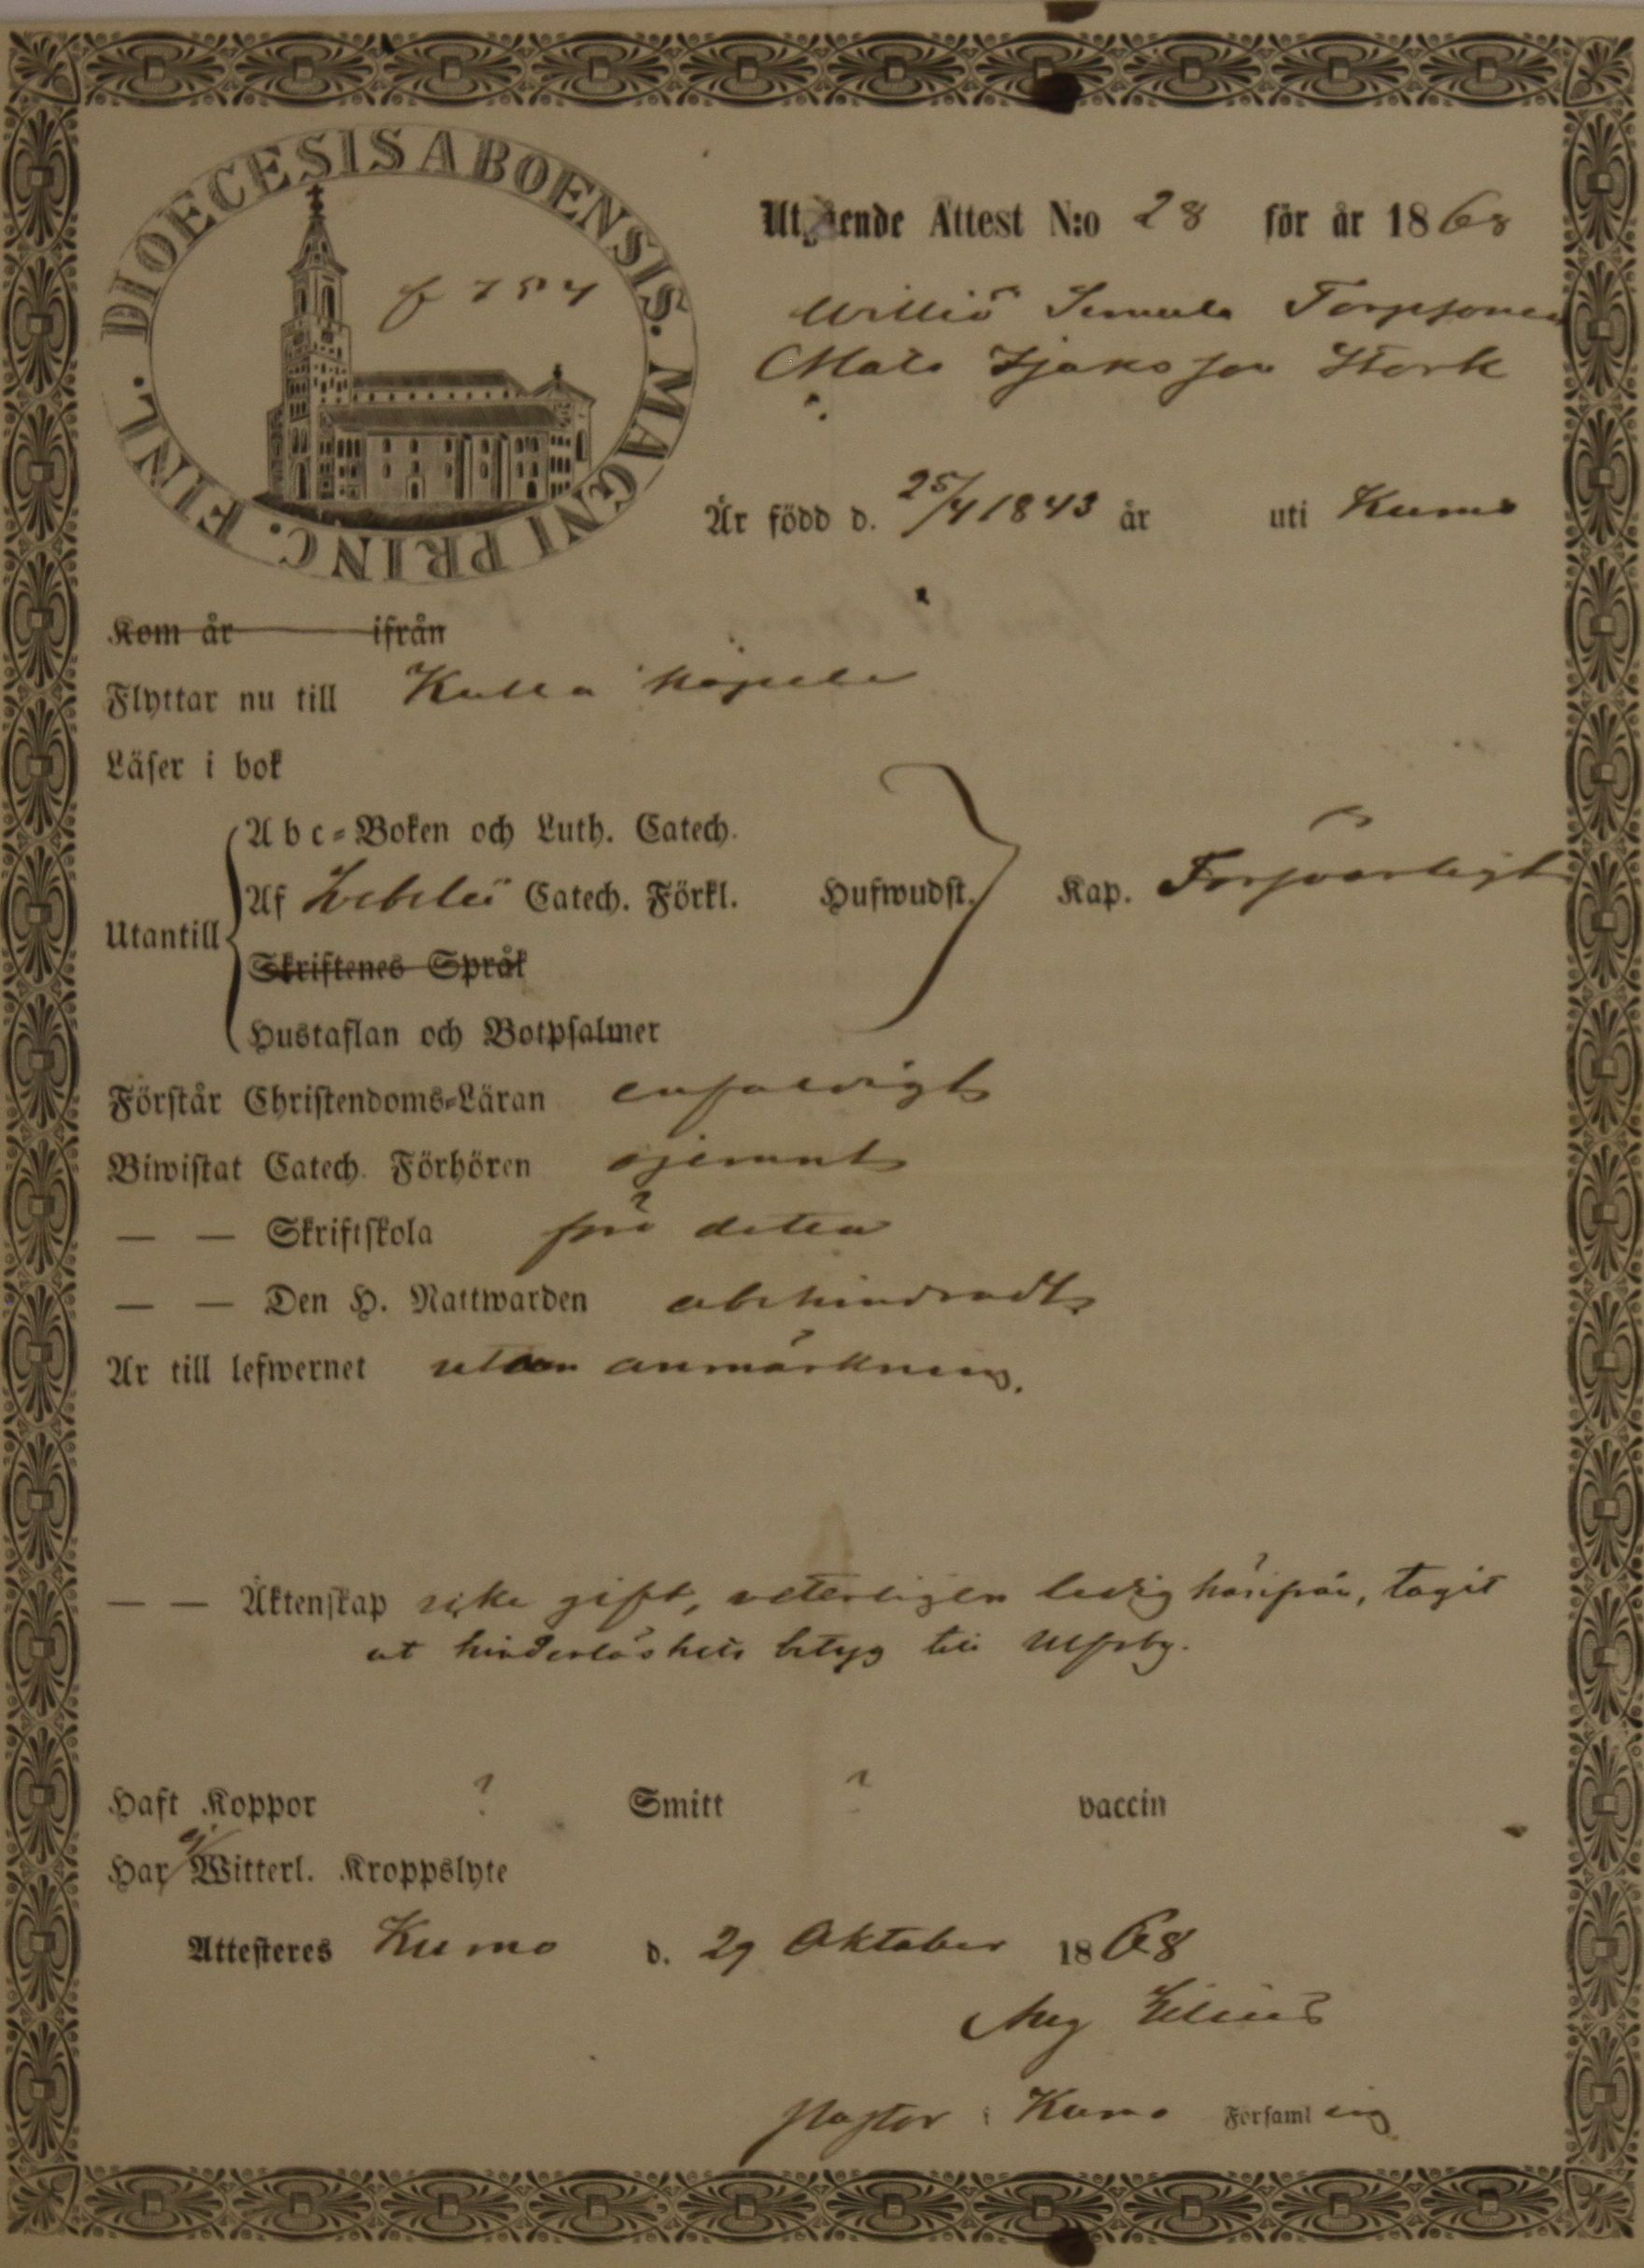 DIOECESIS ABOENSIS. MAGNI PRINC. FINL.
Utgående Attest N:o 28 för år 1868
Torpsonen
Mats Isaksson Stork
Är född d. 25/4 1843 år uti Kumo
Kom år ifrån
Flyttar nu till Kulla Kapell
Läser i bok
Abc-Boken och Luth. Catech.
Utantill Af Catech. Förkl. Hufwudst. Kap. Försvarligt
Skriftenes Språk
Hustaflan och Botpsalmer
Förstår Christendoms-Läran enfaldigt
Biwistat Catech. Förhören ojemnt
— — Skriftskola
— — Den H. Nattwarden obehindradt
Är till lefwernet utan anmärkning.
— — Äktenskap icke gift, veterligen ledig härifrån, tagit
ut hinderlöshets betyg till Ulfsby.
Haft Koppor ? Smitt ? vaccin
Har ej Witterl. Kroppslyte
Attesteres Kumo d. 29 Oktober 1868
Aug
Pastor i Kumo Församling